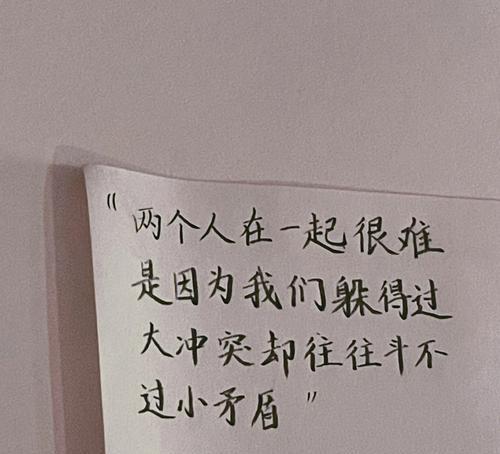 “两个人在一起很难
是因为我们躲得过
大冲突却往往斗不
过小矛盾”